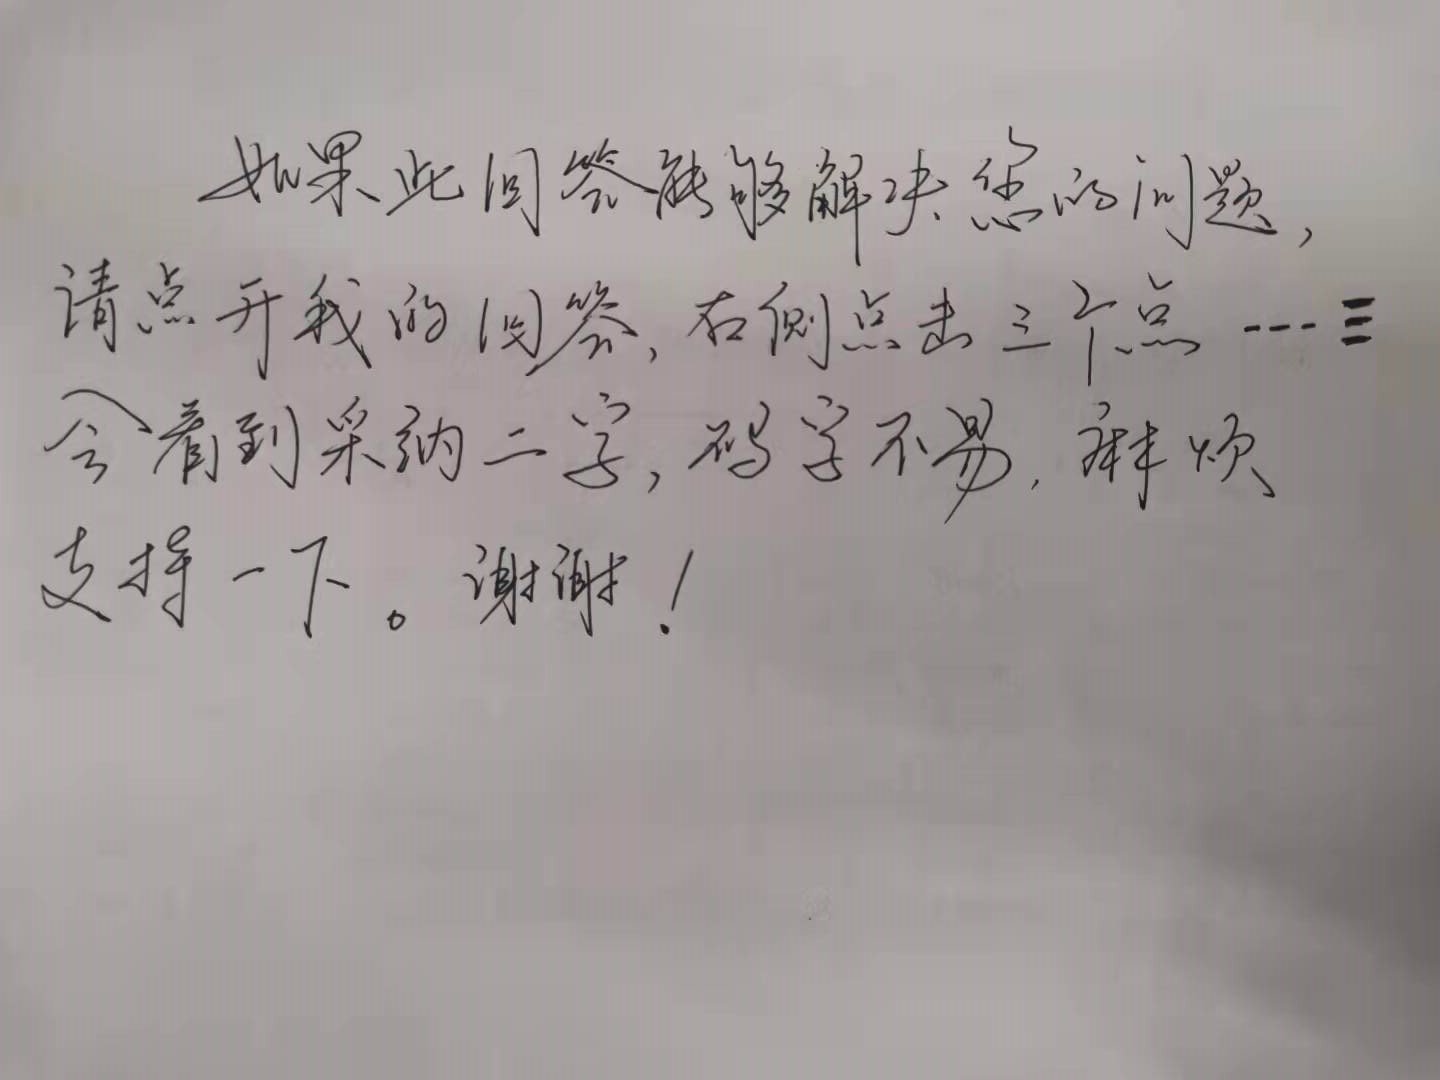 如果此回答能够解决您的问题,
请点开我的回答,右侧点击三个点 --- ≡
会看到采纳二字,码字不易,麻烦
支持一下。谢谢!